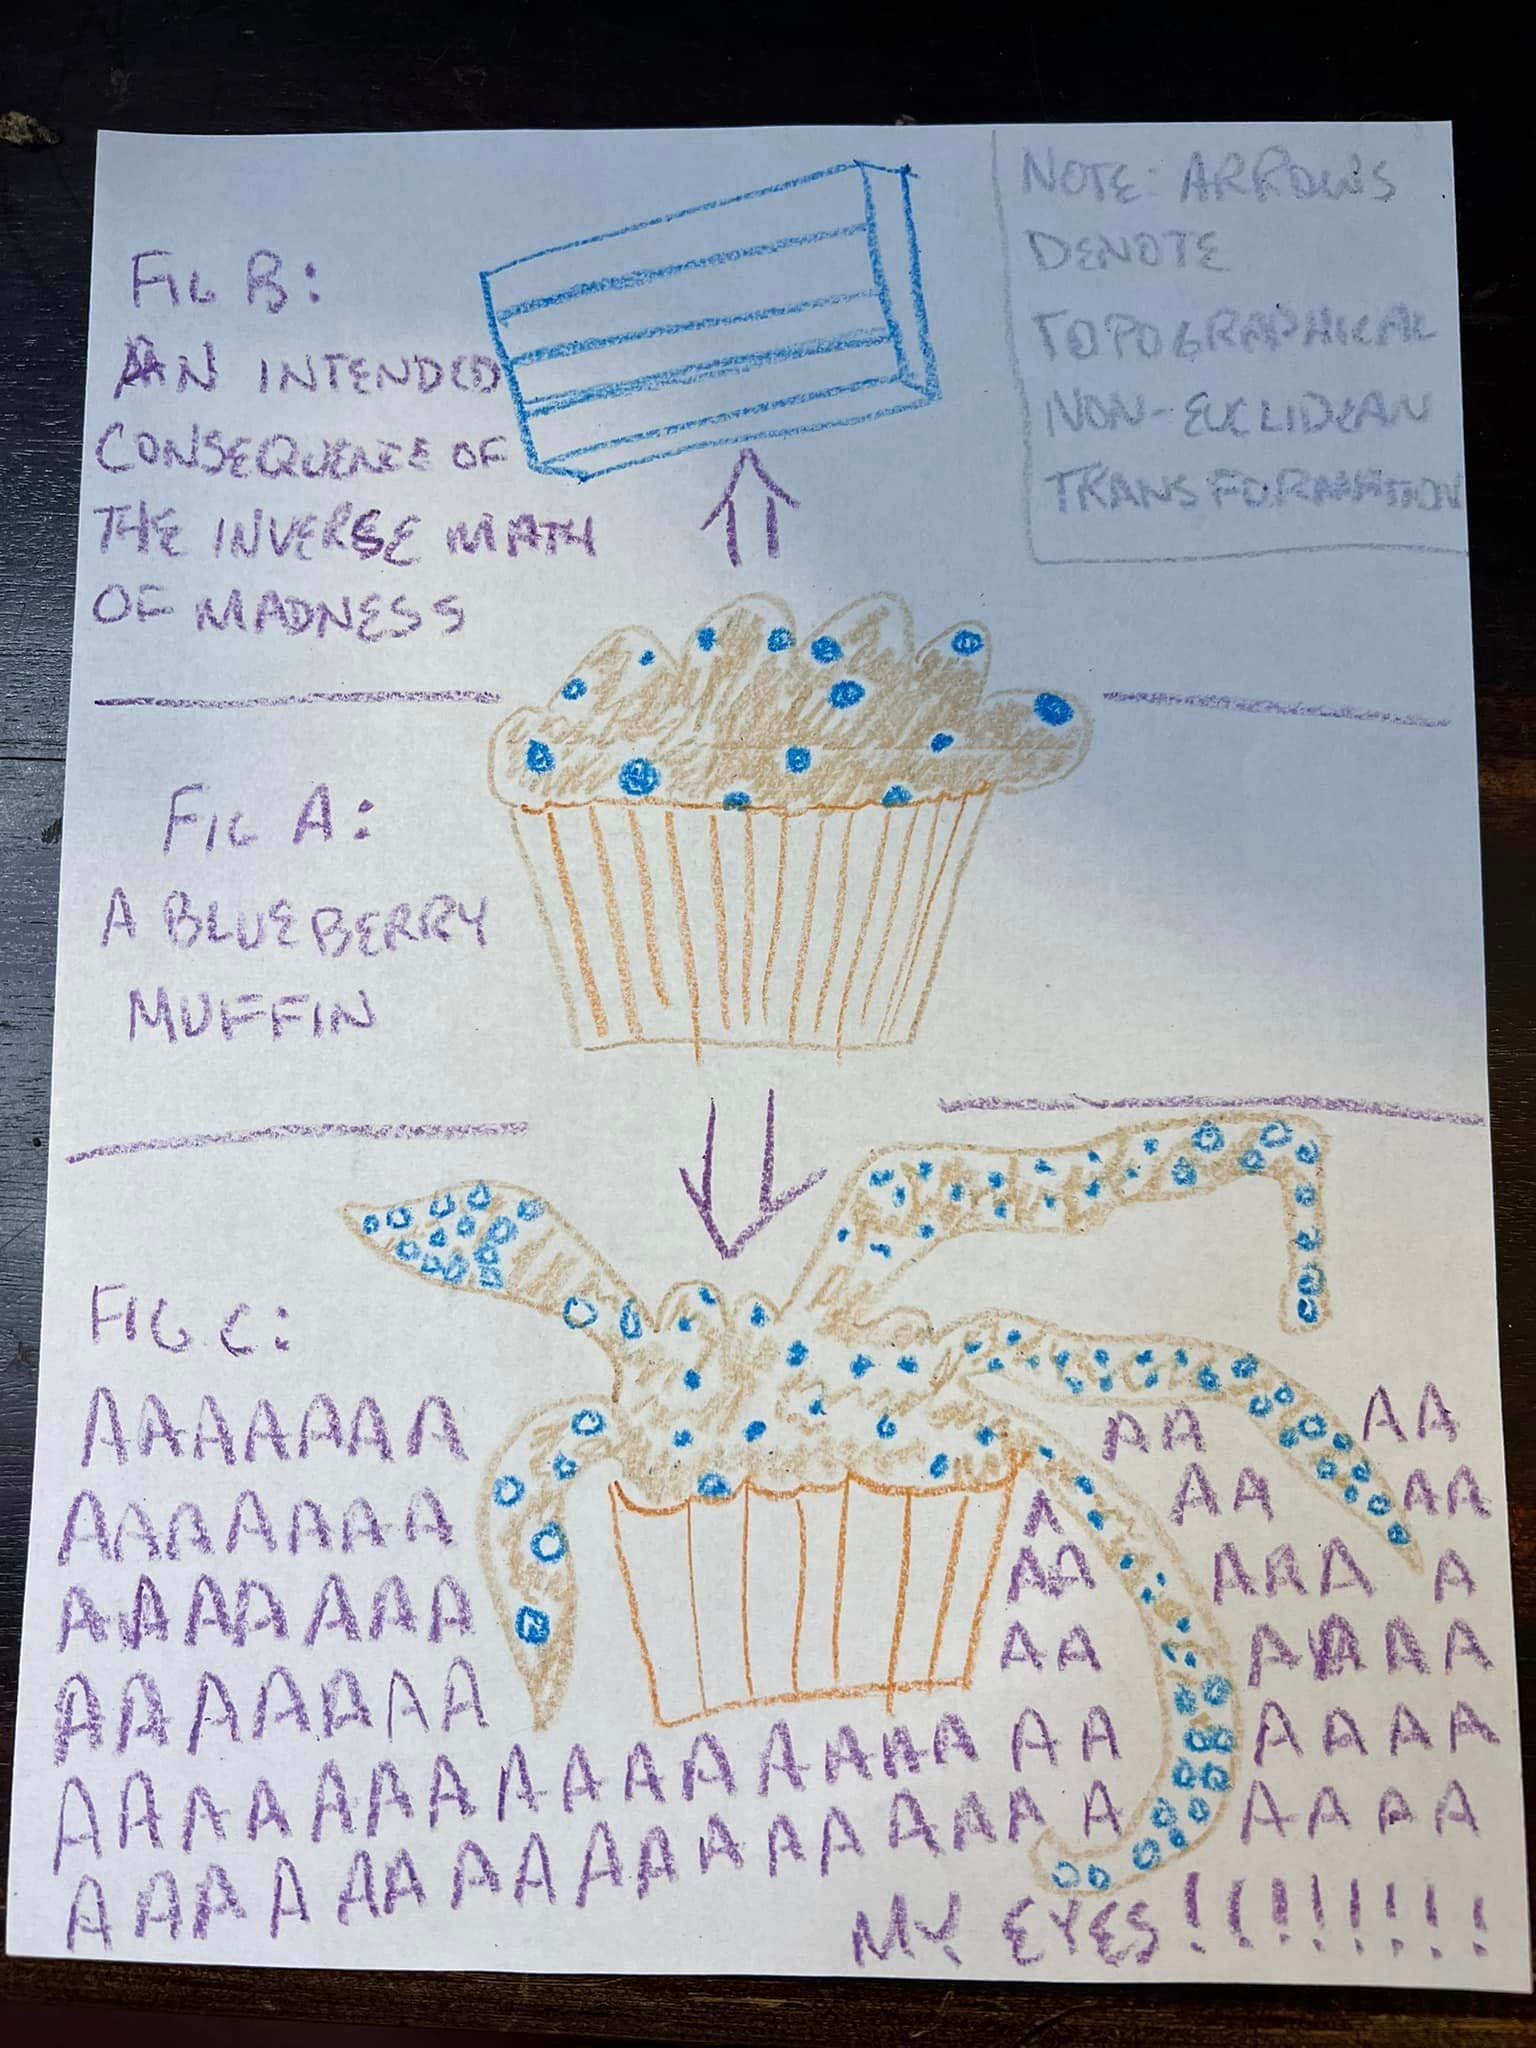 NOTE: ARROWS
DENOTE
TOPOGRAPHICAL
NON-EUCLIDEAN
TRANSFORMATION
FIG B:
AN INTENDED
CONSEQUENCE OF
THE INVERSE MATH
OF MADNESS
FIG A:
A BLUEBERRY
MUFFIN
FIG C:
AAAAAAA AA AA
AAAAAAA A AA AA
AAAAAAA AA AAA A
AAAAAAA AA AAAA
AAAAAAAAAAAAAAAAA AAAA
AAAAAAAAAAAAAAAAA AAAA
MY EYES!!!!!!!!